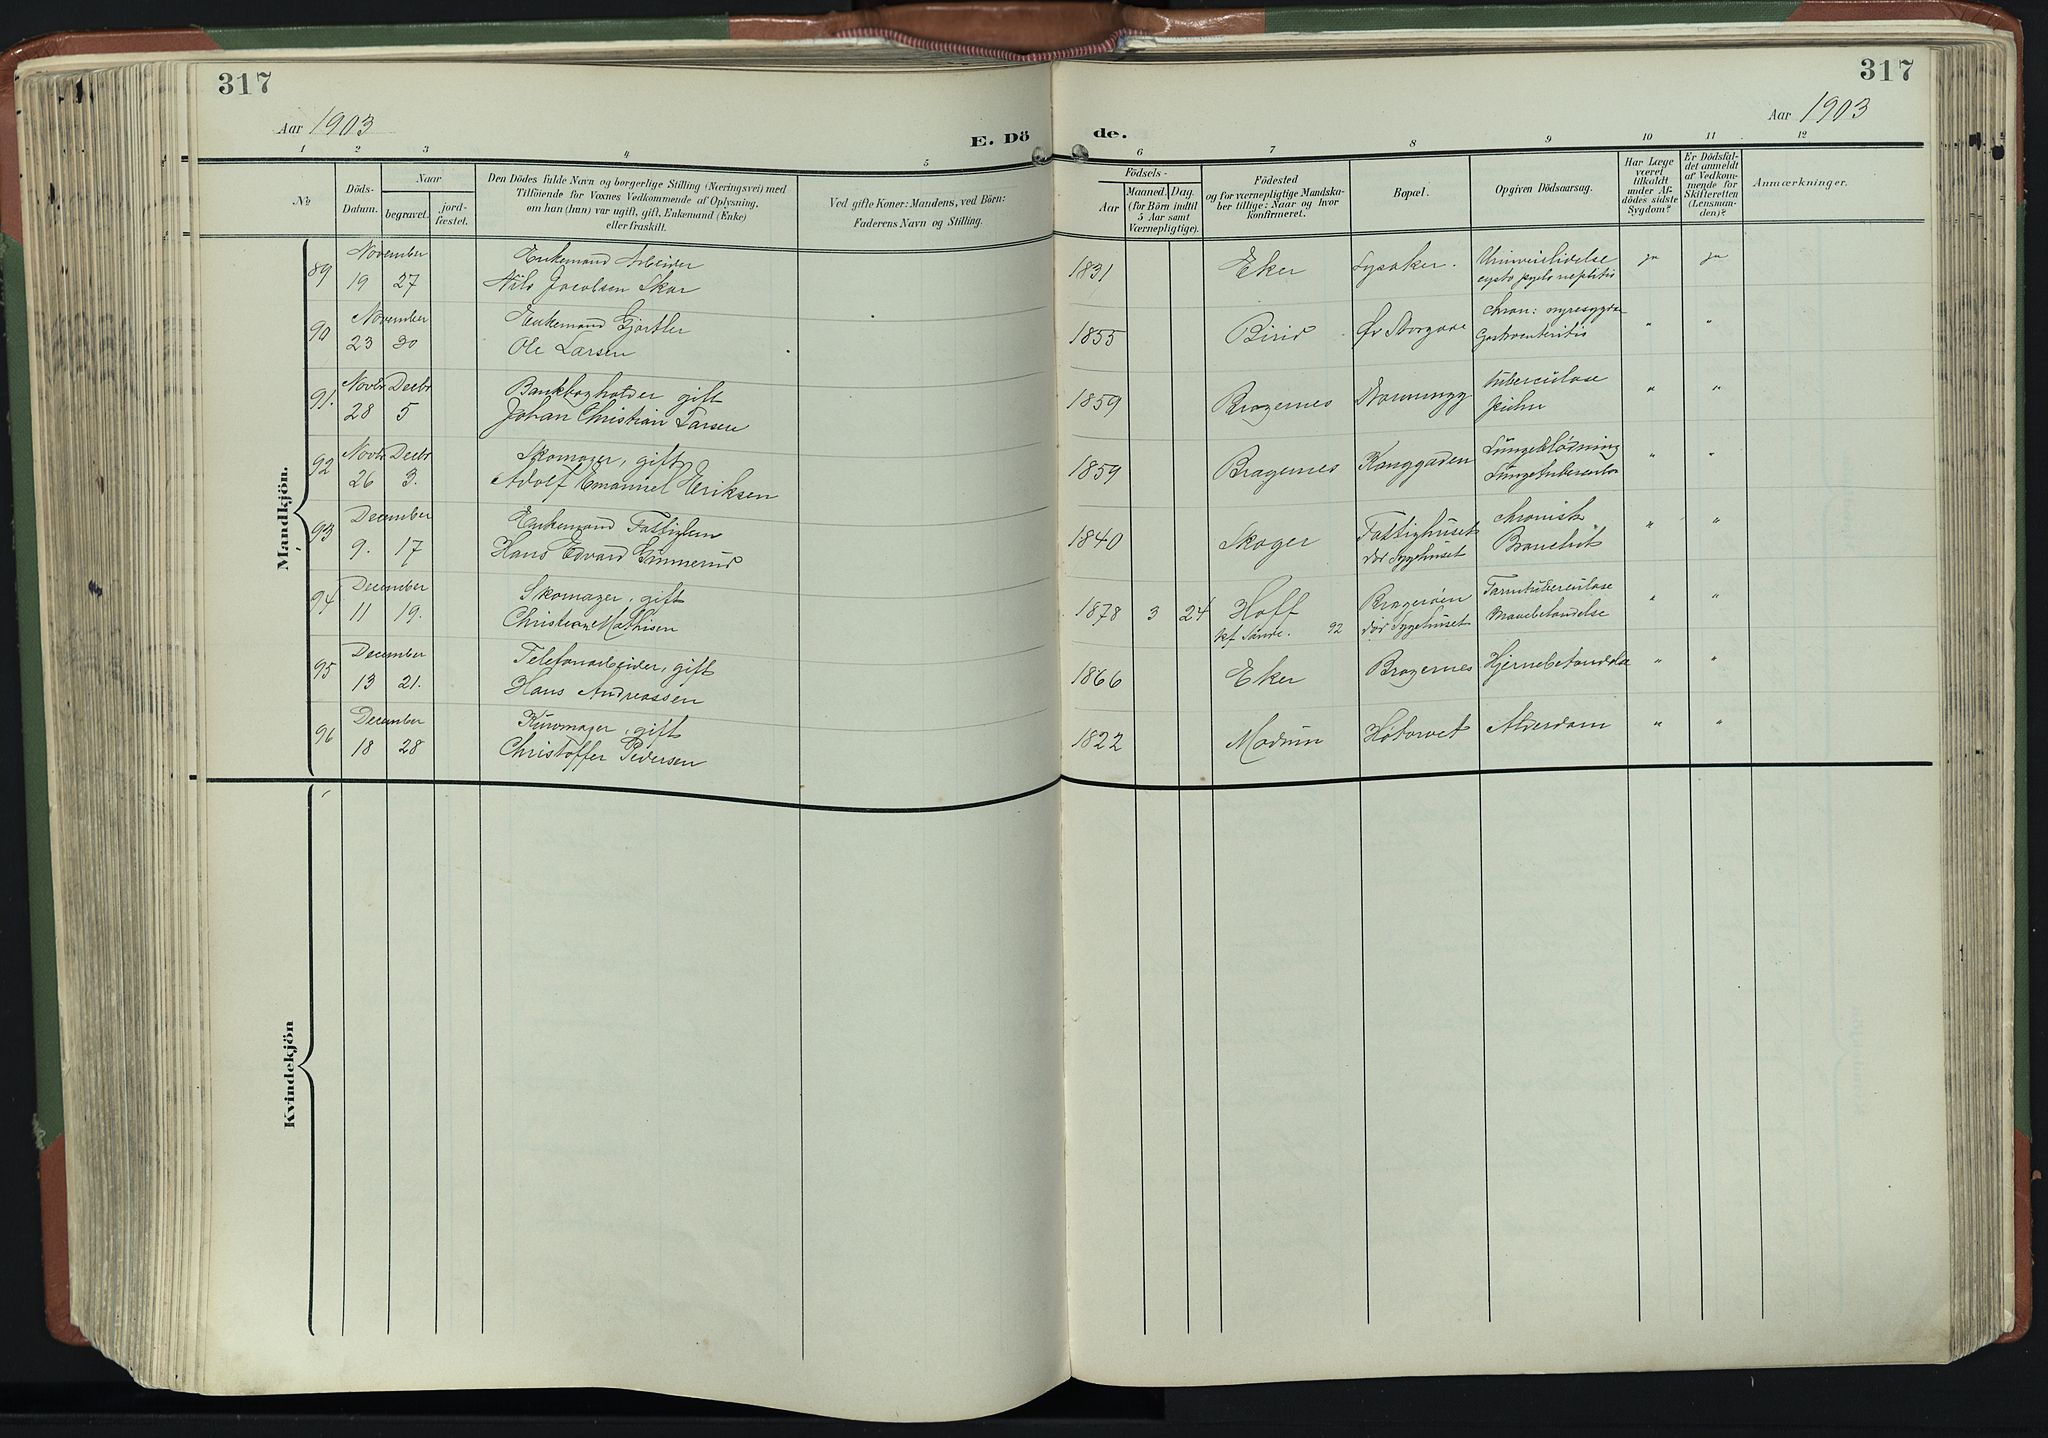 317
317
Aar 1903
Aar 1903
E. Dö
de.
1 2 3 4 5 6 7 8 9 10 11 12
№
Döds-
Datum.
Naar
begravet.
jord-
fæstet.
Den Dödes fulde Navn og borgerlige Stilling (Næringsvei) med
Tilföiende for Voxnes Vedkommende af Oplysning,
om han (hun) var ugift, gift, Enkemand (Enke)
eller fraskilt.
Ved gifte Koner: Mandens, ved Börn:
Faderens Navn og Stilling.
Födsels-
Aar
Maaned.
Dag.
(for Börn indtil
5 Aar samt
Værnepligtige).
Födested
og for værnepligtige Mandska-
ber tillige: Naar og hvor
konfirmeret.
Bopæl.
Opgiven Dödsaarsag.
Har Læge
været
tilkaldt
under Af-
dödes sidste
Sygdom?
Er Dödsfal-
det anmeldt
af Vedkom-
mende for
Skifteretten
(Lensman-
den)?
Anmærkninger.
Mandkjön.
89 November Enkemand Arbeider
19 27 Nils Jacobsen Skar 1831 Eker Lysaker. ja ja
90 November Enkemand Gjørtler
23 30 Ole Larsen 1855 Birid Øv Storgade Gastroenteritis " "
91. Novbr Decbr Bankbogholder gift tuberculose
28 5 Johan Christian Larsen 1859 Bragernes " "
92 Novbr Decbr Skomager, gift Lungeblødning
26 3. Adolf Emanuel Eriksen 1859 Bragernes Konggaden Lungetuberculos " "
93 December Enkemand Fattiglem Fattighuset chronisk
9. 17 Hans Edvard Gunnerud 1840 Skoger dør Sygehuset Bronchit " "
94 December Skomager, gift Hoff Bragerøen Tarmtuberculose
11 19. Christian Mathisen 1878 3 24 kf Sande. 92 dør Sygehuset Mavebetændelse " "
95 December Telefonarbeider, gift
13 21. Hans Andreassen 1866 Eker Bragernes Hjernebetændelse " "
96 December Kurvmager, gift
18 28 Christoffer Pedersen 1822 Modum Høtorvet Alderdom " "
Kvindekjön